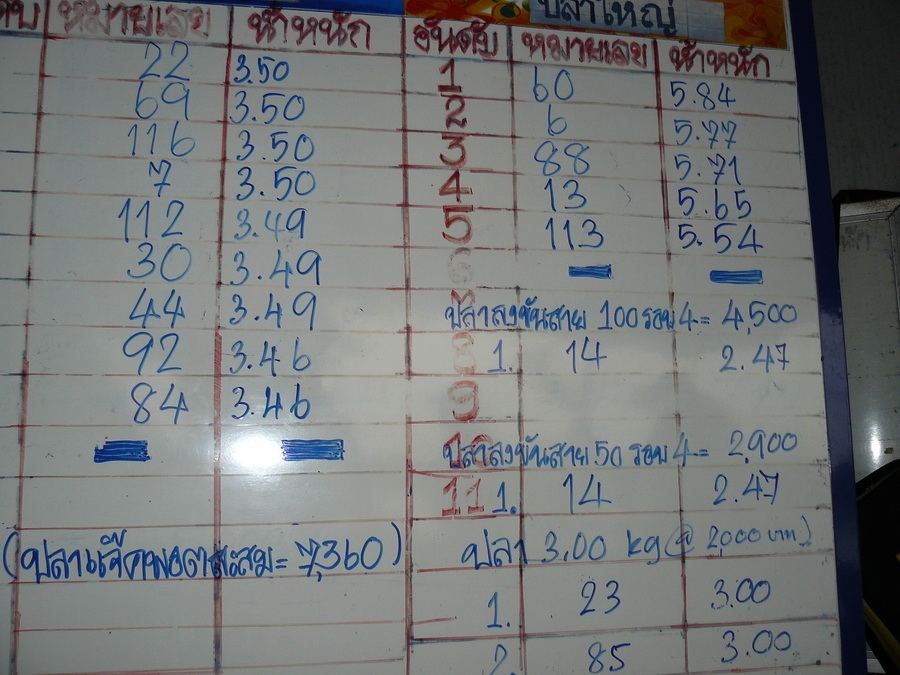 ปลาใหญ่
หมายเลข น้ำหนัก
22 3.50
69 3.50
116 3.50
7 3.50
112 3.49
30 3.49
44 3.49
92 3.46
84 3.46
(ปลาแจ็คพอตสะสม = 7,360)
อันดับ หมายเลข น้ำหนัก
1 60 5.84
2 6 5.77
3 88 5.71
4 13 5.65
5 113 5.54
ปลาลงขันสาย 100 รอบ 4 = 4,500
1. 14 2.47
9
ปลาลงขันสาย 50 รอบ 4 = 2,900
11 1. 14 2.47
ปลา 3.00 kg (@ 2,000 บาท)
1. 23 3.00
2. 85 3.00